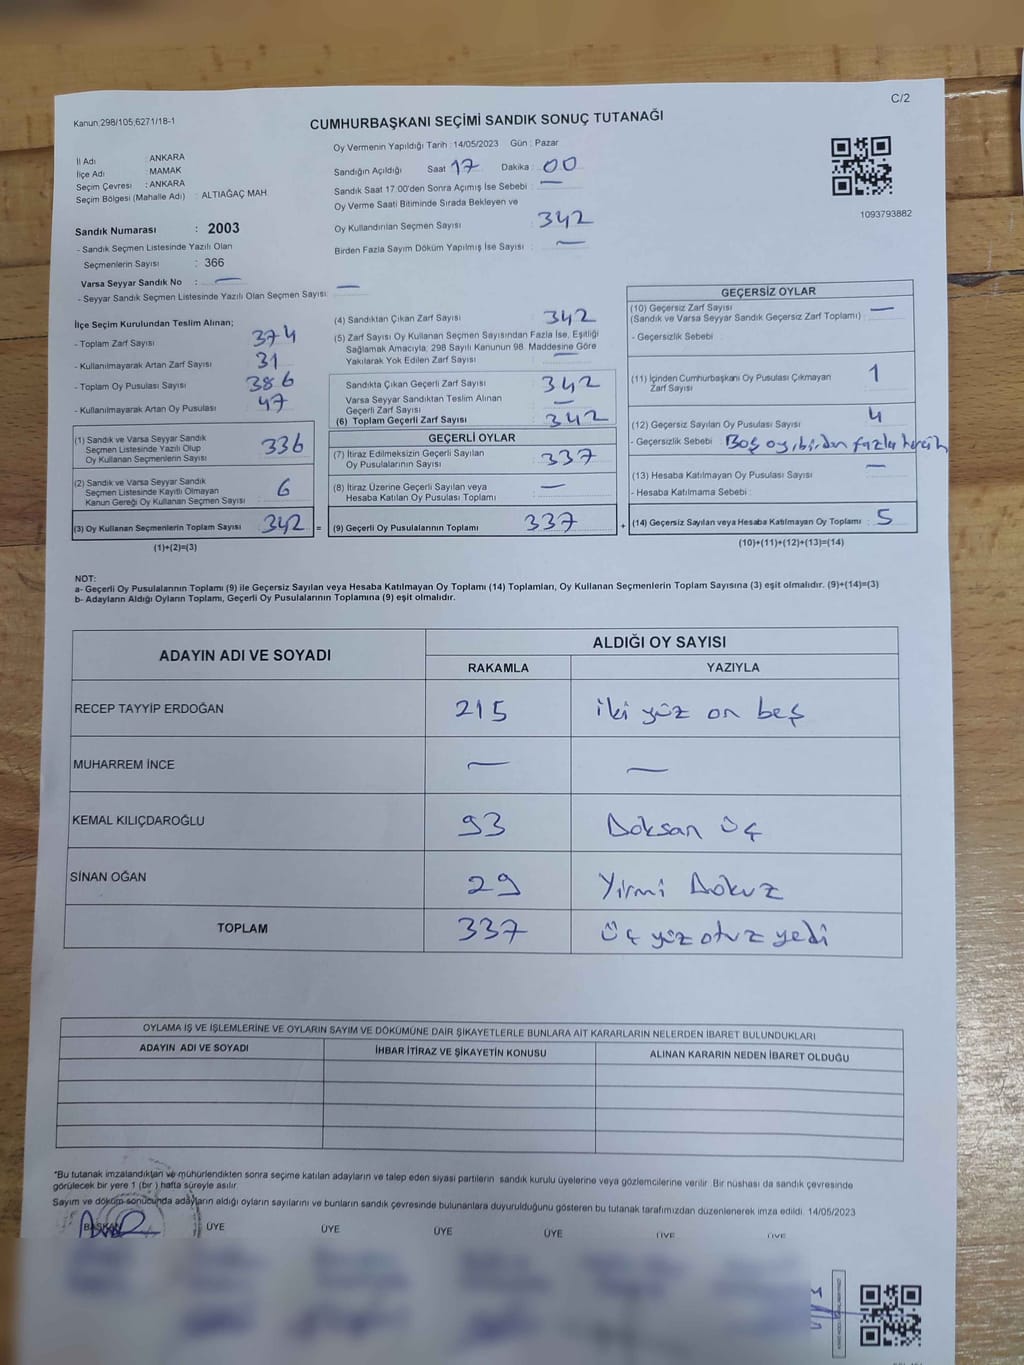 C/2
Kanun:298/105,6271/18-1
CUMHURBAŞKANI SEÇİMİ SANDIK SONUÇ TUTANAĞI
İl Adı : ANKARA
İlçe Adı : MAMAK
Seçim Çevresi : ANKARA
Seçim Bölgesi (Mahalle Adı) : ALTIAĞAÇ MAH.
Oy Vermenin Yapıldığı Tarih : 14/05/2023 Gün : Pazar
Sandığın Açıldığı Saat 17 Dakika : 00
Sandık Saat 17:00'den Sonra Açımış İse Sebebi : —
Oy Verme Saati Bitiminde Sırada Bekleyen ve
Oy Kullandırılan Seçmen Sayısı : 342
Birden Fazla Sayım Döküm Yapılmış İse Sayısı : —
1093793882
Sandık Numarası : 2003
- Sandık Seçmen Listesinde Yazılı Olan
Seçmenlerin Sayısı : 366
Varsa Seyyar Sandık No : —
- Seyyar Sandık Seçmen Listesinde Yazılı Olan Seçmen Sayısı : —
İlçe Seçim Kurulundan Teslim Alınan;
- Toplam Zarf Sayısı 374
- Kullanılmayarak Artan Zarf Sayısı 31
- Toplam Oy Pusulası Sayısı 386
- Kullanılmayarak Artan Oy Pusulası 47
(1) Sandık ve Varsa Seyyar Sandık
Seçmen Listesinde Yazılı Olup
Oy Kullanan Seçmenlerin Sayısı 336
(2) Sandık ve Varsa Seyyar Sandık
Seçmen Listesinde Kayıtlı Olmayan
Kanun Gereği Oy Kullanan Seçmen Sayısı 6
(3) Oy Kullanan Seçmenlerin Toplam Sayısı 342 =
(1)+(2)=(3)
(4) Sandıktan Çıkan Zarf Sayısı : 342
(5) Zarf Sayısı Oy Kullanan Seçmen Sayısından Fazla İse, Eşitliği
Sağlamak Amacıyla, 298 Sayılı Kanunun 98. Maddesine Göre
Yakılarak Yok Edilen Zarf Sayısı : —
Sandıkta Çıkan Geçerli Zarf Sayısı : 342
Varsa Seyyar Sandıktan Teslim Alınan
Geçerli Zarf Sayısı : —
(6) Toplam Geçerli Zarf Sayısı : 342
GEÇERLİ OYLAR
(7) İtiraz Edilmeksizin Geçerli Sayılan
Oy Pusulalarının Sayısı : 337
(8) İtiraz Üzerine Geçerli Sayılan veya
Hesaba Katılan Oy Pusulası Toplamı : —
(9) Geçerli Oy Pusulalarının Toplamı : 337 +
GEÇERSİZ OYLAR
(10) Geçersiz Zarf Sayısı
(Sandık ve Varsa Seyyar Sandık Geçersiz Zarf Toplamı) : —
- Geçersizlik Sebebi :
(11) İçinden Cumhurbaşkanı Oy Pusulası Çıkmayan
Zarf Sayısı : 1
(12) Geçersiz Sayılan Oy Pusulası Sayısı : 4
- Geçersizlik Sebebi : Boş oy, birden fazla tercih
(13) Hesaba Katılmayan Oy Pusulası Sayısı : —
- Hesaba Katılmama Sebebi :
(14) Geçersiz Sayılan veya Hesaba Katılmayan Oy Toplamı : 5
(10)+(11)+(12)+(13)=(14)
NOT:
a- Geçerli Oy Pusulalarının Toplamı (9) ile Geçersiz Sayılan veya Hesaba Katılmayan Oy Toplamı (14) Toplamları, Oy Kullanan Seçmenlerin Toplam Sayısına (3) eşit olmalıdır. (9)+(14)=(3)
b- Adayların Aldığı Oyların Toplamı, Geçerli Oy Pusulalarının Toplamına (9) eşit olmalıdır.
ADAYIN ADI VE SOYADI ALDIĞI OY SAYISI
RAKAMLA YAZIYLA
RECEP TAYYİP ERDOĞAN 215 iki yüz on beş
MUHARREM İNCE — —
KEMAL KILIÇDAROĞLU 93 Doksan üç
SİNAN OĞAN 29 Yirmi Dokuz
TOPLAM 337 üç yüz otuz yedi
OYLAMA İŞ VE İŞLEMLERİNE VE OYLARIN SAYIM VE DÖKÜMÜNE DAİR ŞİKAYETLERLE BUNLARA AİT KARARLARIN NELERDEN İBARET BULUNDUKLARI
ADAYIN ADI VE SOYADI İHBAR İTİRAZ VE ŞİKAYETİN KONUSU ALINAN KARARIN NEDEN İBARET OLDUĞU
*Bu tutanak imzalandıktan ve mühürlendikten sonra seçime katılan adayların ve talep eden siyasi partilerin sandık kurulu üyelerine veya gözlemcilerine verilir. Bir nüshası da sandık çevresinde
görülecek bir yere 1 (bir) hafta süreyle asılır.
Sayım ve döküm sonucunda adayların aldığı oyların sayılarını ve bunların sandık çevresinde bulunanlara duyurulduğunu gösteren bu tutanak tarafımızdan düzenlenerek imza edildi. 14/05/2023
BAŞKAN ÜYE ÜYE ÜYE ÜYE ÜYE ÜYE